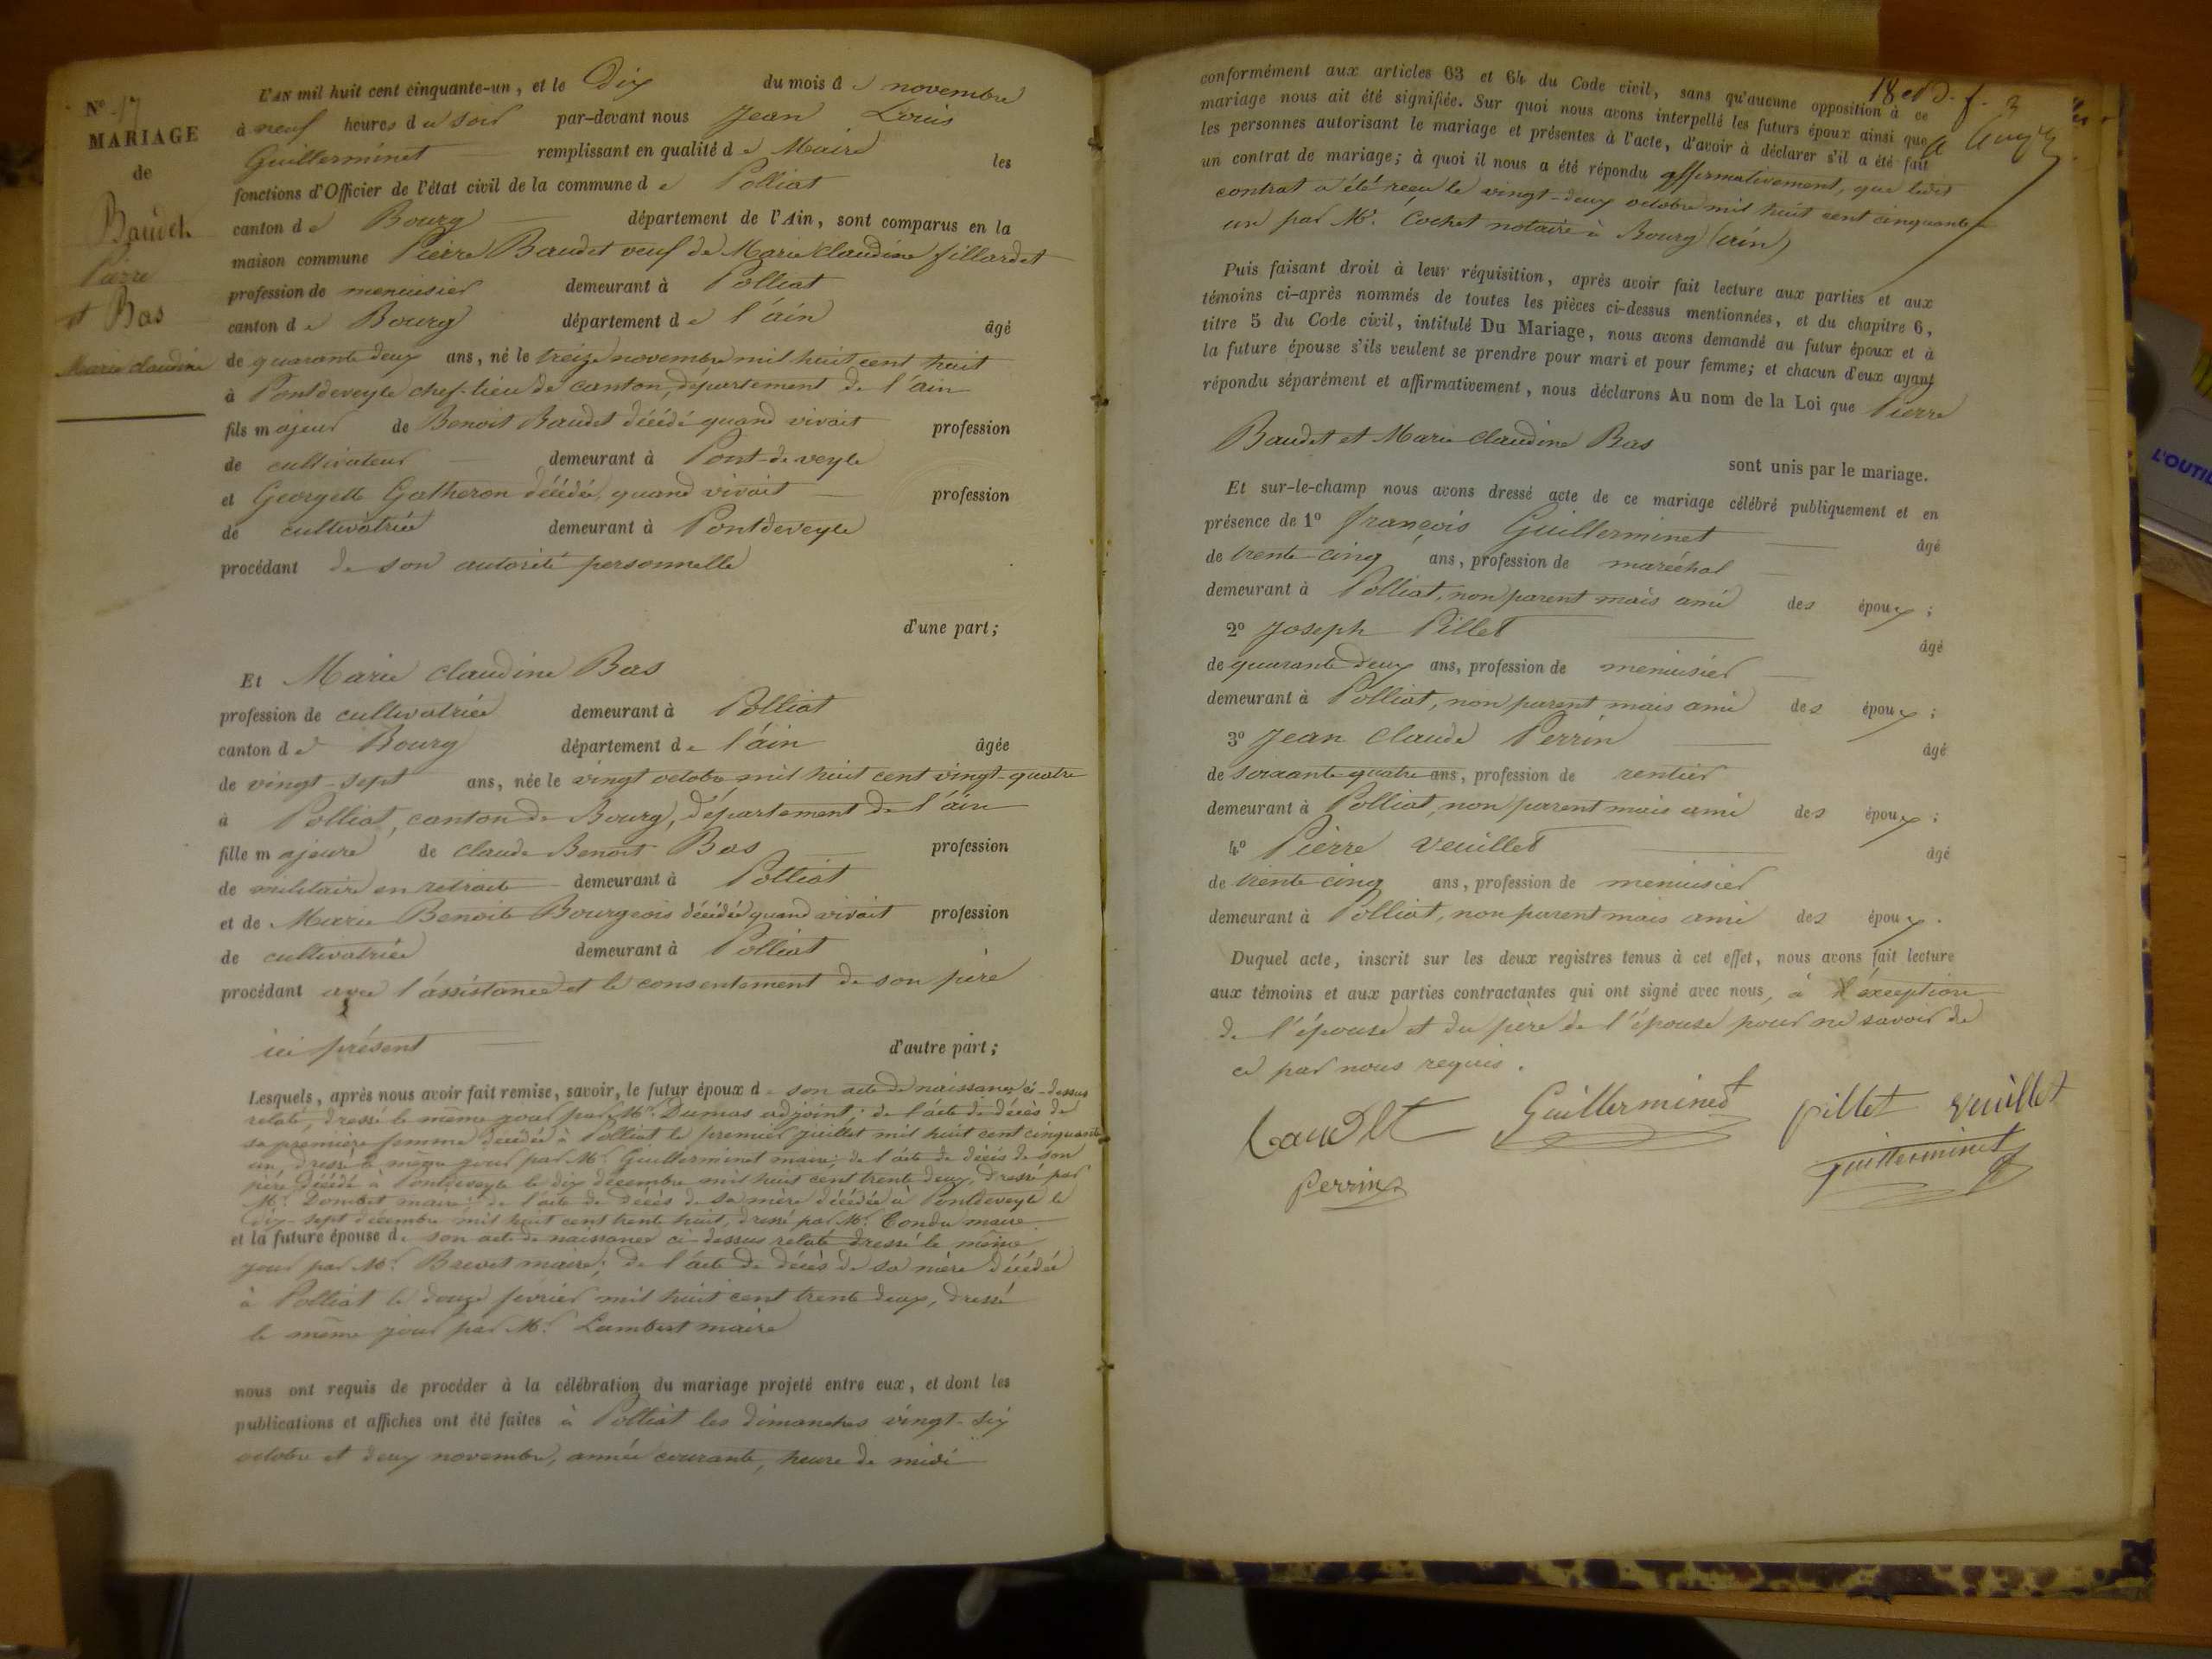 N° 17
MARIAGE
de
Baudet
Pierre
et Bas
Marie Claudine
L'AN mil huit cent cinquante-un, et le Dix du mois de novembre
à neuf heures du soir par-devant nous Jean Louis
Guillerminet remplissant en qualité de Maire les
fonctions d'Officier de l'état civil de la commune de Polliat
canton de Bourg département de l'Ain, sont comparus en la
maison commune Pierre Baudet veuf de Marie Claudine fillardet
profession de menuisier demeurant à Polliat
canton de Bourg département de l'ain âgé
de quarante deux ans, né le treize novembre mil huit cent huit
à Pontdeveyle chef-lieu de canton, département de l'ain
fils majeur de Benoit Baudet décédé quand vivait profession
de cultivateur demeurant à Pont-de-veyle
et Georgette Gatheron décédée, quand vivait profession
de cultivatrice demeurant à Pontdeveyle
procédant de son autorité personnelle
d'une part;
Et Marie Claudine Bas
profession de cultivatrice demeurant à Polliat
canton de Bourg département de l'ain âgée
de vingt-sept ans, née le vingt octobre mil huit cent vingt-quatre
à Polliat, canton de Bourg, département de l'ain
fille majeure de Claude Benoit Bas profession
de militaire en retraite demeurant à Polliat
et de Marie Benoite Bourgeois décédée, quand vivait profession
de cultivatrice demeurant à Polliat
procédant avec l'assistance et le consentement de son père
ici présent d'autre part;
Lesquels, après nous avoir fait remise, savoir, le futur époux de son acte de naissance ci-dessus
relaté, dressé le même jour par Mr. Dumas adjoint; de l'acte de décès de
sa première femme décédée à Polliat le premier juillet mil huit cent cinquante
un, dressé le même jour par Mr. Guillerminet maire; de l'acte de décès de son
père décédé à Pontdeveyle le dix décembre mil huit cent trente deux, dressé par
Mr. Dombet maire; de l'acte de décès de sa mère décédée à Pontdeveyle le
dix-sept décembre mil huit cent trente huit, dressé par Mr. Condu maire
et la future épouse de son acte de naissance ci-dessus relaté dressé le même
jour par Mr. Brevet maire; de l'acte de décès de sa mère décédée
à Polliat le douze février mil huit cent trente deux, dressé
le même jour par Mr. Lambert maire
nous ont requis de procéder à la célébration du mariage projeté entre eux, et dont les
publications et affiches ont été faites à Polliat les dimanches vingt-six
octobre et deux novembre, année courante, heure de midi
conformément aux articles 63 et 64 du Code civil, sans qu'aucune opposition à ce
mariage nous ait été signifiée. Sur quoi nous avons interpellé les futurs époux ainsi que
les personnes autorisant le mariage et présentes à l'acte, d'avoir à déclarer s'il a été fait
un contrat de mariage; à quoi il nous a été répondu affirmativement, que ledit
contrat a été reçu le vingt-deux octobre mil huit cent cinquante
un par Mr. Cochet notaire à Bourg (ain)
Puis faisant droit à leur réquisition, après avoir fait lecture aux parties et aux
témoins ci-après nommés de toutes les pièces ci-dessus mentionnées, et du chapitre 6,
titre 5 du Code civil, intitulé Du Mariage, nous avons demandé au futur époux et à
la future épouse s'ils veulent se prendre pour mari et pour femme; et chacun d'eux ayant
répondu séparément et affirmativement, nous déclarons Au nom de la Loi que Pierre
Baudet et Marie Claudine Bas
sont unis par le mariage.
Et sur-le-champ nous avons dressé acte de ce mariage célébré publiquement et en
présence de 1° François Guillerminet âgé
de trente-cinq ans, profession de maréchal
demeurant à Polliat, non parent mais ami des époux;
2° Joseph Pillet âgé
de quarante deux ans, profession de menuisier
demeurant à Polliat, non parent mais ami des époux;
3° Jean Claude Perrin âgé
de soixante quatre ans, profession de rentier
demeurant à Polliat, non parent mais ami des époux;
4° Pierre Veuillet âgé
de trente cinq ans, profession de menuisier
demeurant à Polliat, non parent mais ami des époux.
Duquel acte, inscrit sur les deux registres tenus à cet effet, nous avons fait lecture
aux témoins et aux parties contractantes qui ont signé avec nous, à l'exception
de l'épouse et du père de l'épouse pour ne savoir de
ce par nous requis.
Baudet Guillerminet pillet veuillet
perrin guillerminet
L'OUTIL